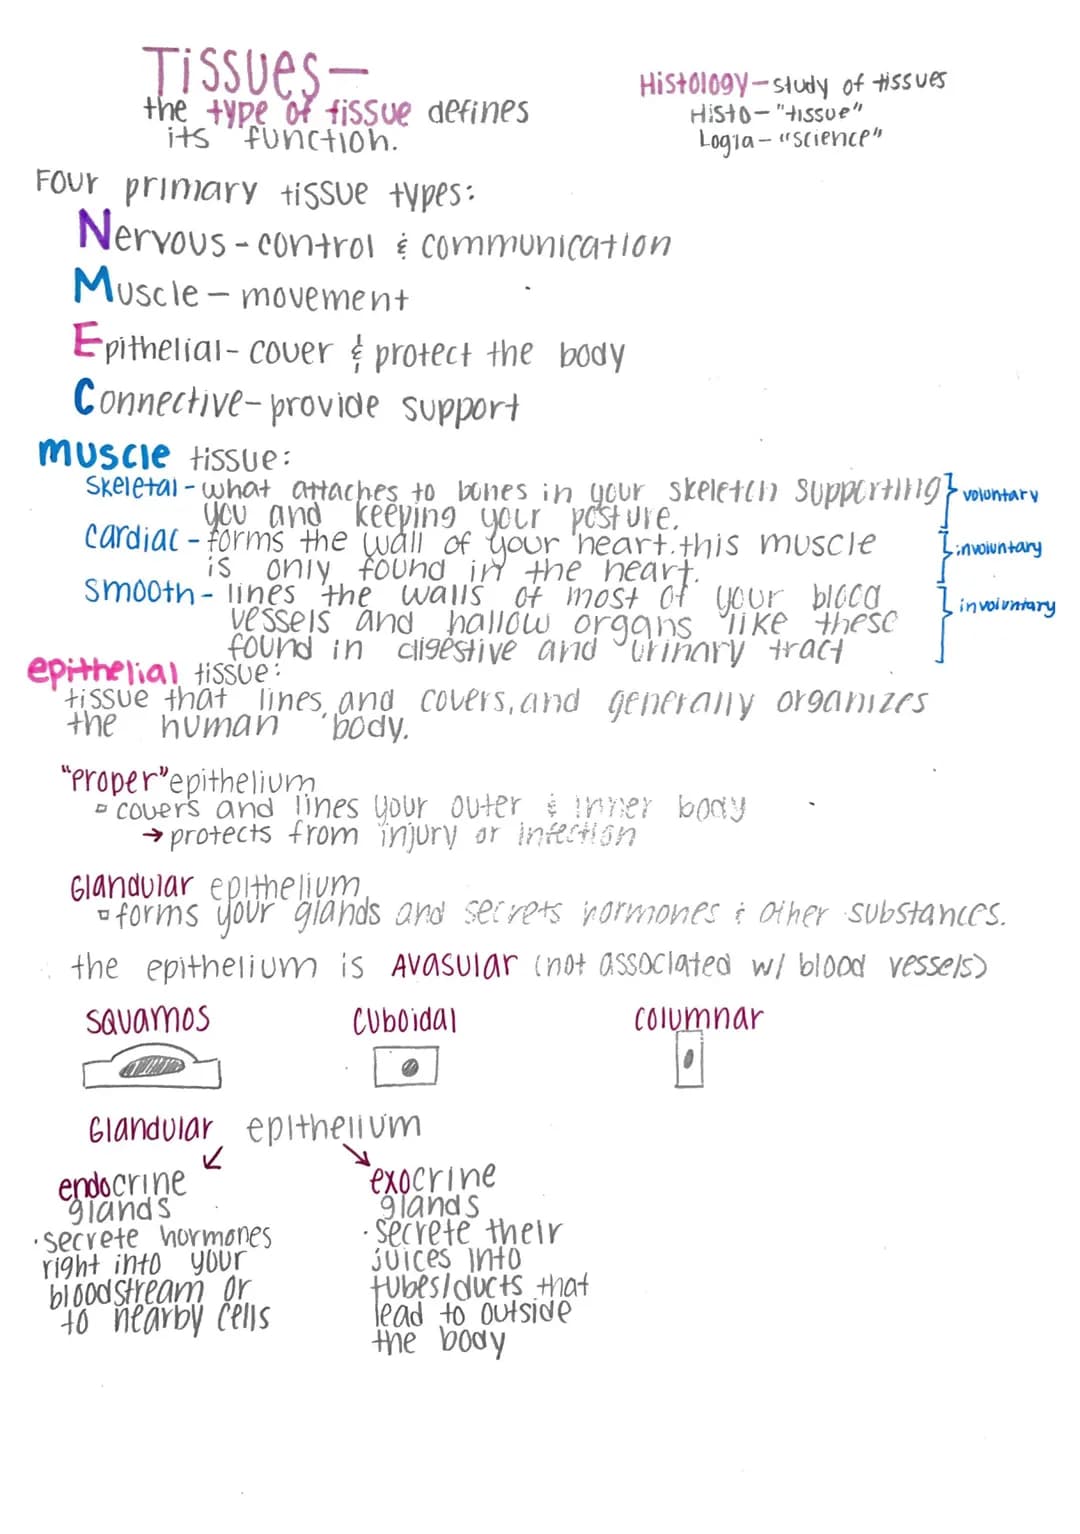 Tissues—
the type of tissue defines
its function.
Histology—study of tissues
Histo—"tissue"
Logia—"science"
Four primary tissue types:
Nervous-control & communication
Muscle—movement
Epithelial-cover & protect the body
Connective-provide support
muscle tissue:
Skeletal-what attaches to bones in your skeletin supporting
you and keeping your posture.
voluntary
cardiac-forms the wall of your heart.this muscle
is only found in the heart.
involuntary
smooth-lines the walls of most of your blood
vessels and hallow organs like these
found in digestive and urinary tract
involuntary
epithelial tissue:
tissue that lines and covers, and generally organizes
the human body.
"Proper" epithelium
▫ covers and lines your outer & inner body
→ protects from injury or infection
Glandular epithelium
▫ forms your glands and secrets hormones & other substances.
the epithelium is Avasular (not associated w/ blood vessels)
squamos cuboidal columnar
Glandular epithelium
endocrine
glands
·secrete hormones
right into your
bloodstream or
to nearby cells
exocrine
glands
·secrete their
juices into
tubes/ducts that
lead to outside
the body